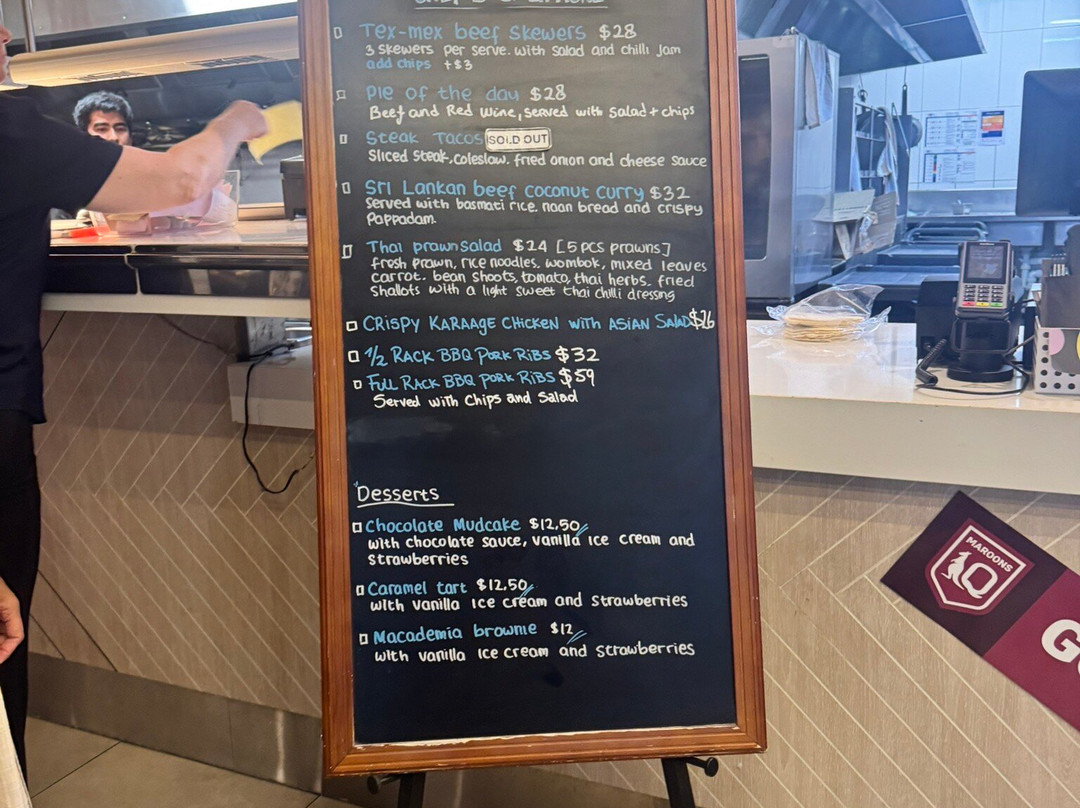 Tex-mex beef skewers $28
3 skewers per serve. with salad and chilli jam
add chips +$3
Pie of the day $28
Beef and Red Wine, served with salad + chips
Steak Tacos SOLD OUT
Sliced Steak, coleslaw. fried onion and cheese sauce
Sri Lankan beef coconut curry $32
Served with basmati rice, naan bread and crispy
Pappadam.
Thai prawn salad $24 [5 pcs prawns]
fresh prawn, rice noodles, wombok, mixed leaves
carrot. bean shoots, tomato, thai herbs. fried
shallots with a light sweet thai chilli dressing
Crispy Karaage Chicken with Asian Salad $26
1/2 Rack BBQ Pork Ribs $32
Full Rack BBQ Pork Ribs $59
Served with Chips and Salad
Desserts
Chocolate Mudcake $12.50
with chocolate sauce, vanilla ice cream and
strawberries
Caramel tart $12.50
with vanilla ice cream and strawberries
Macademia brownie $12
with vanilla ice cream and strawberries
MAROONS
Q
G